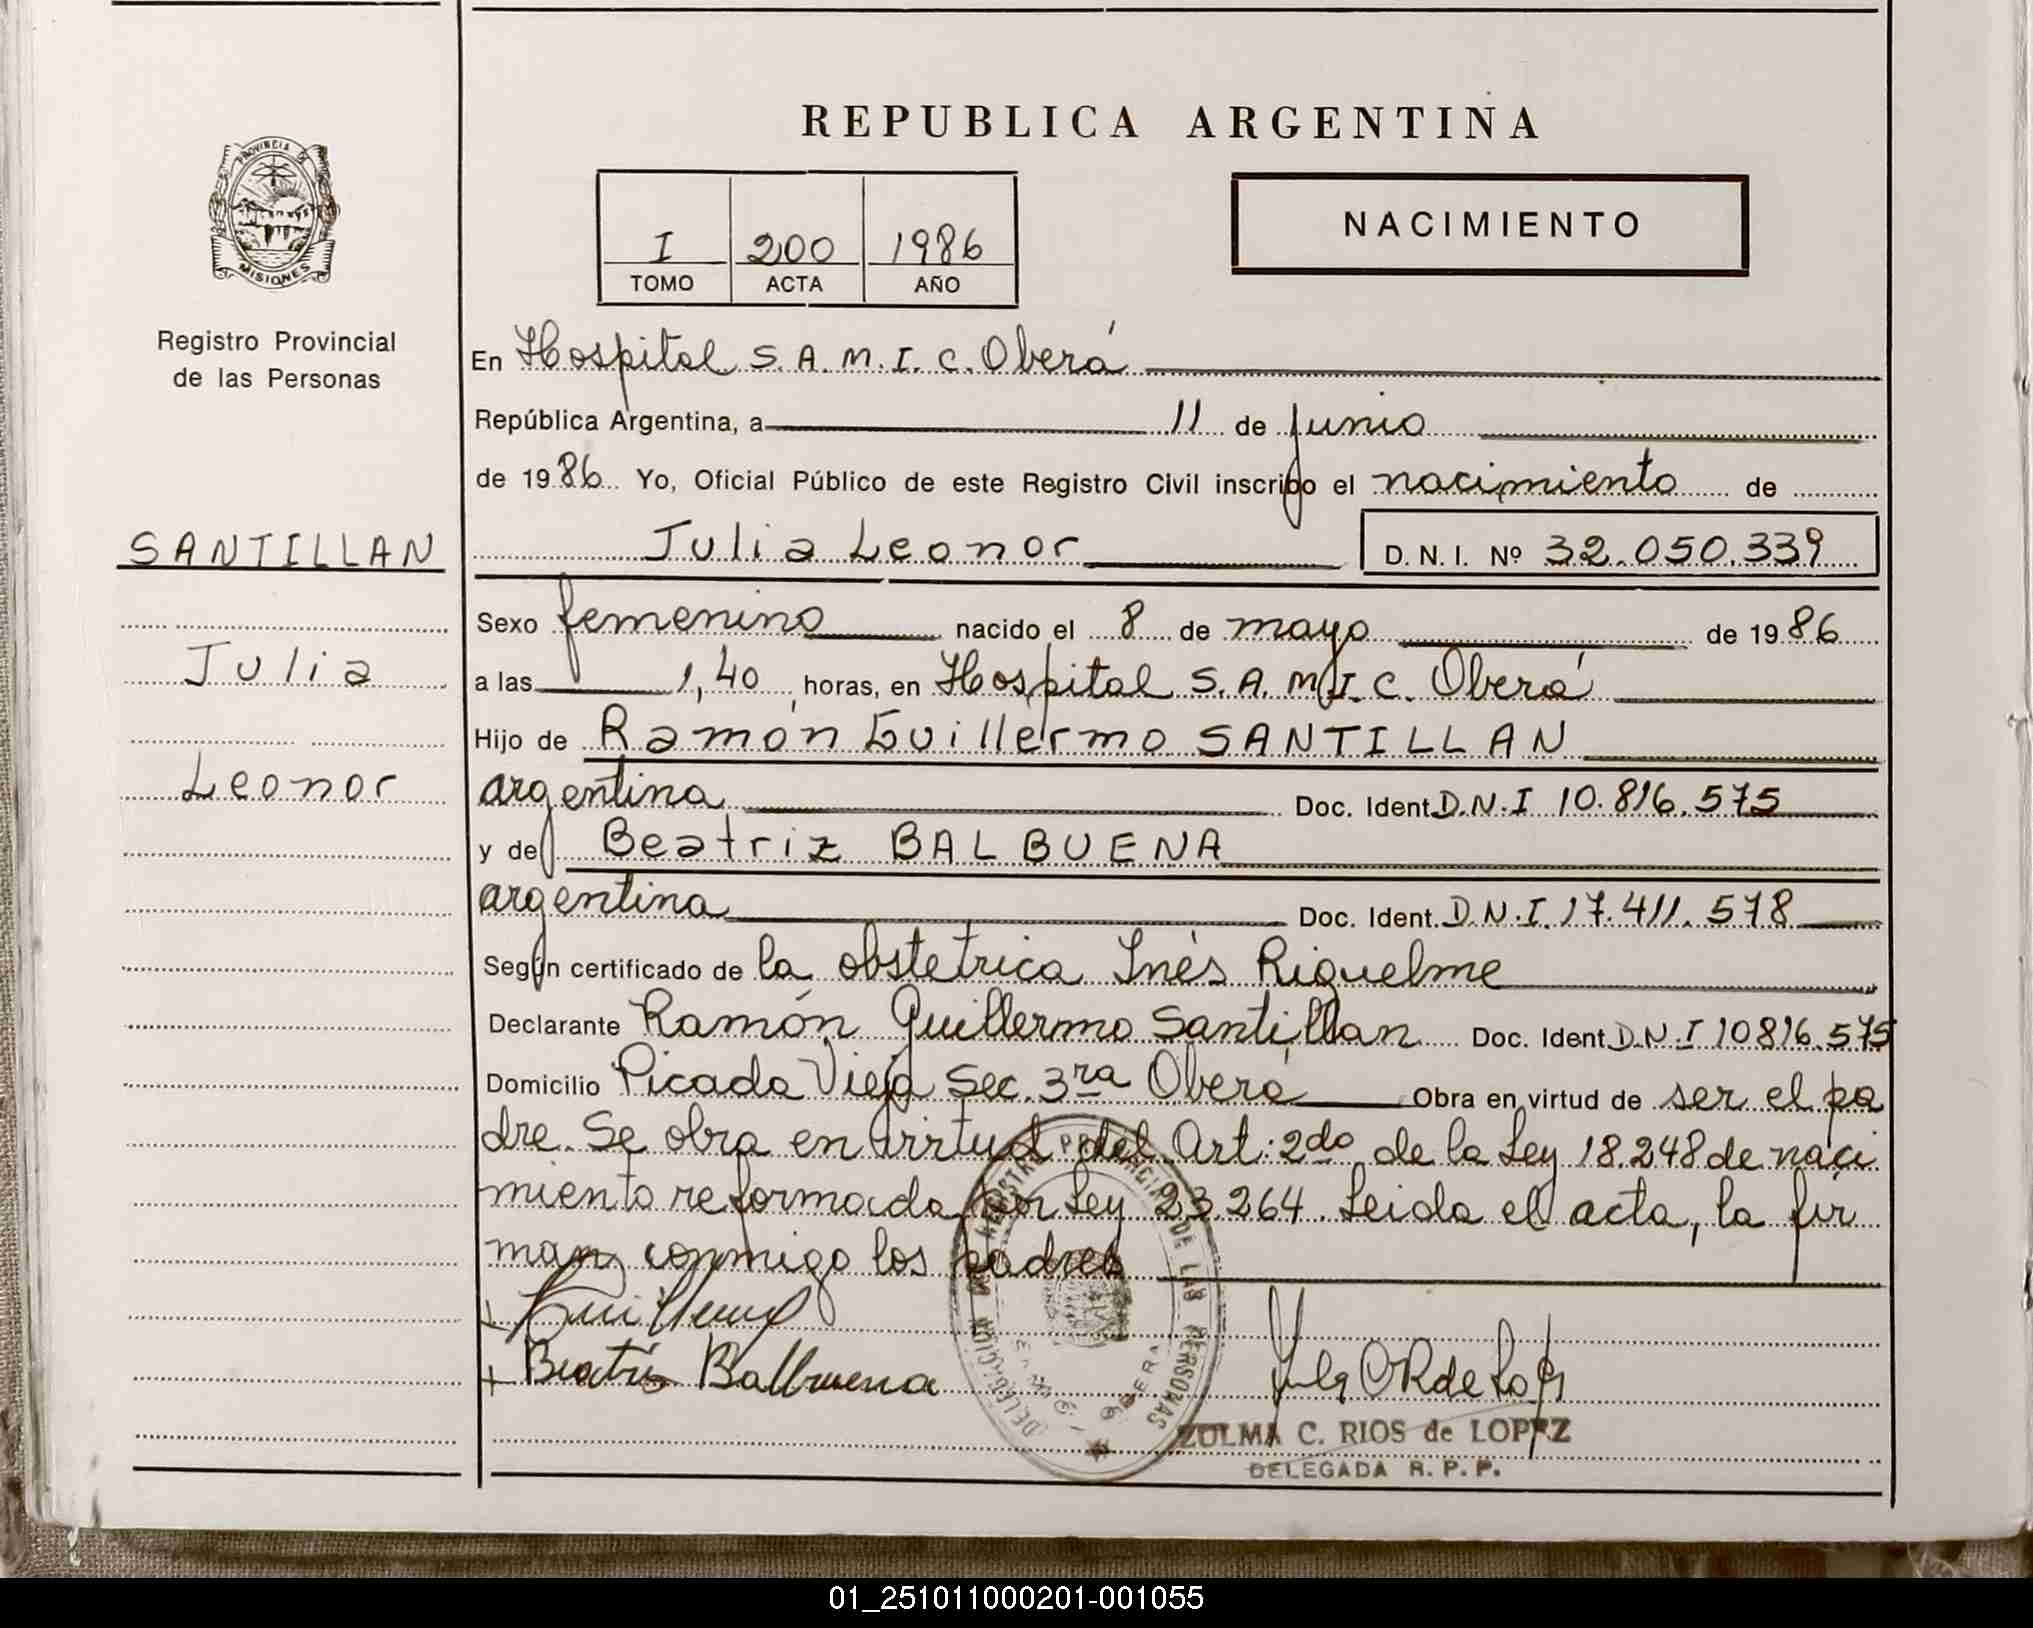 REPUBLICA ARGENTINA
PROVINCIA DE
MISIONES
Registro Provincial
de las Personas
I 200 1986
TOMO ACTA AÑO
NACIMIENTO
SANTILLAN
Julia
Leonor
En Hospital S.A.M.I.C. Oberá
República Argentina, a 11 de junio
de 1986 Yo, Oficial Público de este Registro Civil inscribo el nacimiento de
Julia Leonor D.N.I. Nº 32.050.339
Sexo femenino nacido el 8 de mayo de 1986
a las 1,40 horas, en Hospital S.A.M.I.C. Oberá
Hijo de Ramón Guillermo SANTILLAN
argentina Doc. Ident. D.N.I 10.816.575
y de Beatriz BALBUENA
argentina Doc. Ident. D.N.I. 17.411.578
Según certificado de la obstetrica Inés Riquelme
Declarante Ramón Guillermo Santillan Doc. Ident. D.N.I 10816.575
Domicilio Picada Vieja Sec. 3ra Oberá Obra en virtud de ser el pa
dre. Se obra en virtud del Art: 2do de la Ley 18.248 de naci
miento reformada por Ley 23.264. Leida el acta, la fir
man conmigo los padres
Guillermo
Beatris Balbuena
DELEGACION DEL REGISTRO PROVINCIAL DE LAS PERSONAS
OBERA
ZULMA C. RIOS de LOPEZ
DELEGADA R.P.P.
01_251011000201-001055